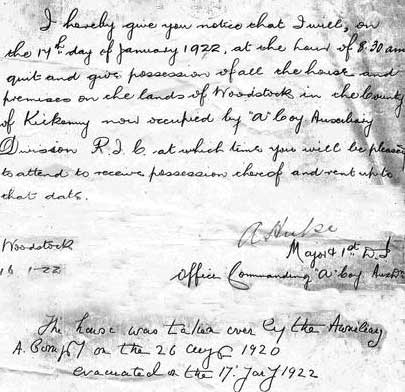 I hereby give you notice that I will, on
the 17th day of January 1922, at the hour of 8.30 am
quit and give possession of all the house and
premises on the lands of Woodstock in the County
of Kilkenny now occupied by "A" Coy Auxiliary
Division R.I.C. at which time you will be pleased
to attend to receive possession thereof and rent up to
that date.
Woodstock
1-22
Major & 1st D.I
Officer Commanding "A" Coy
The house was taken over by the Auxiliary
A. Compy on the 26 Aug 1920
evacuated on the 17. Jany 1922